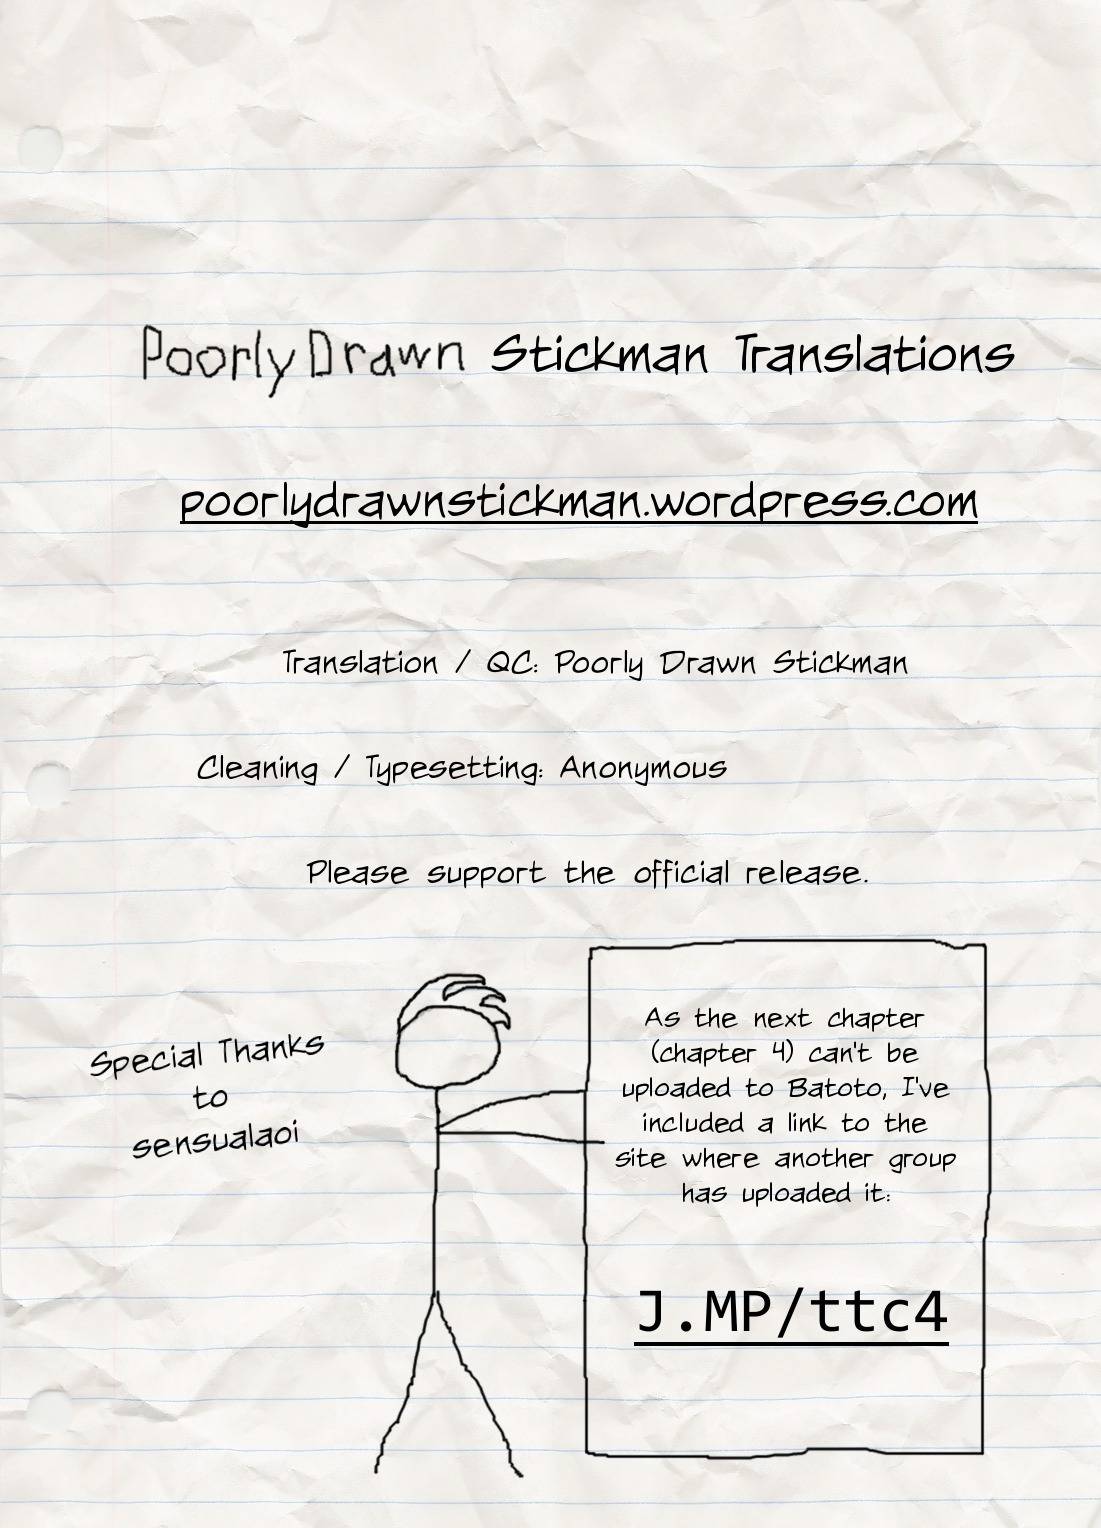 Poorly Drawn Stickman Translations
poorlydrawnstickman.wordpress.com
Translation / QC: Poorly Drawn Stickman
Cleaning / Typesetting: Anonymous
Please support the official release.
Special Thanks
to
sensualaoi
As the next chapter
(chapter 4) can't be
uploaded to Batoto, I've
included a link to the
site where another group
has uploaded it:
J.MP/ttc4